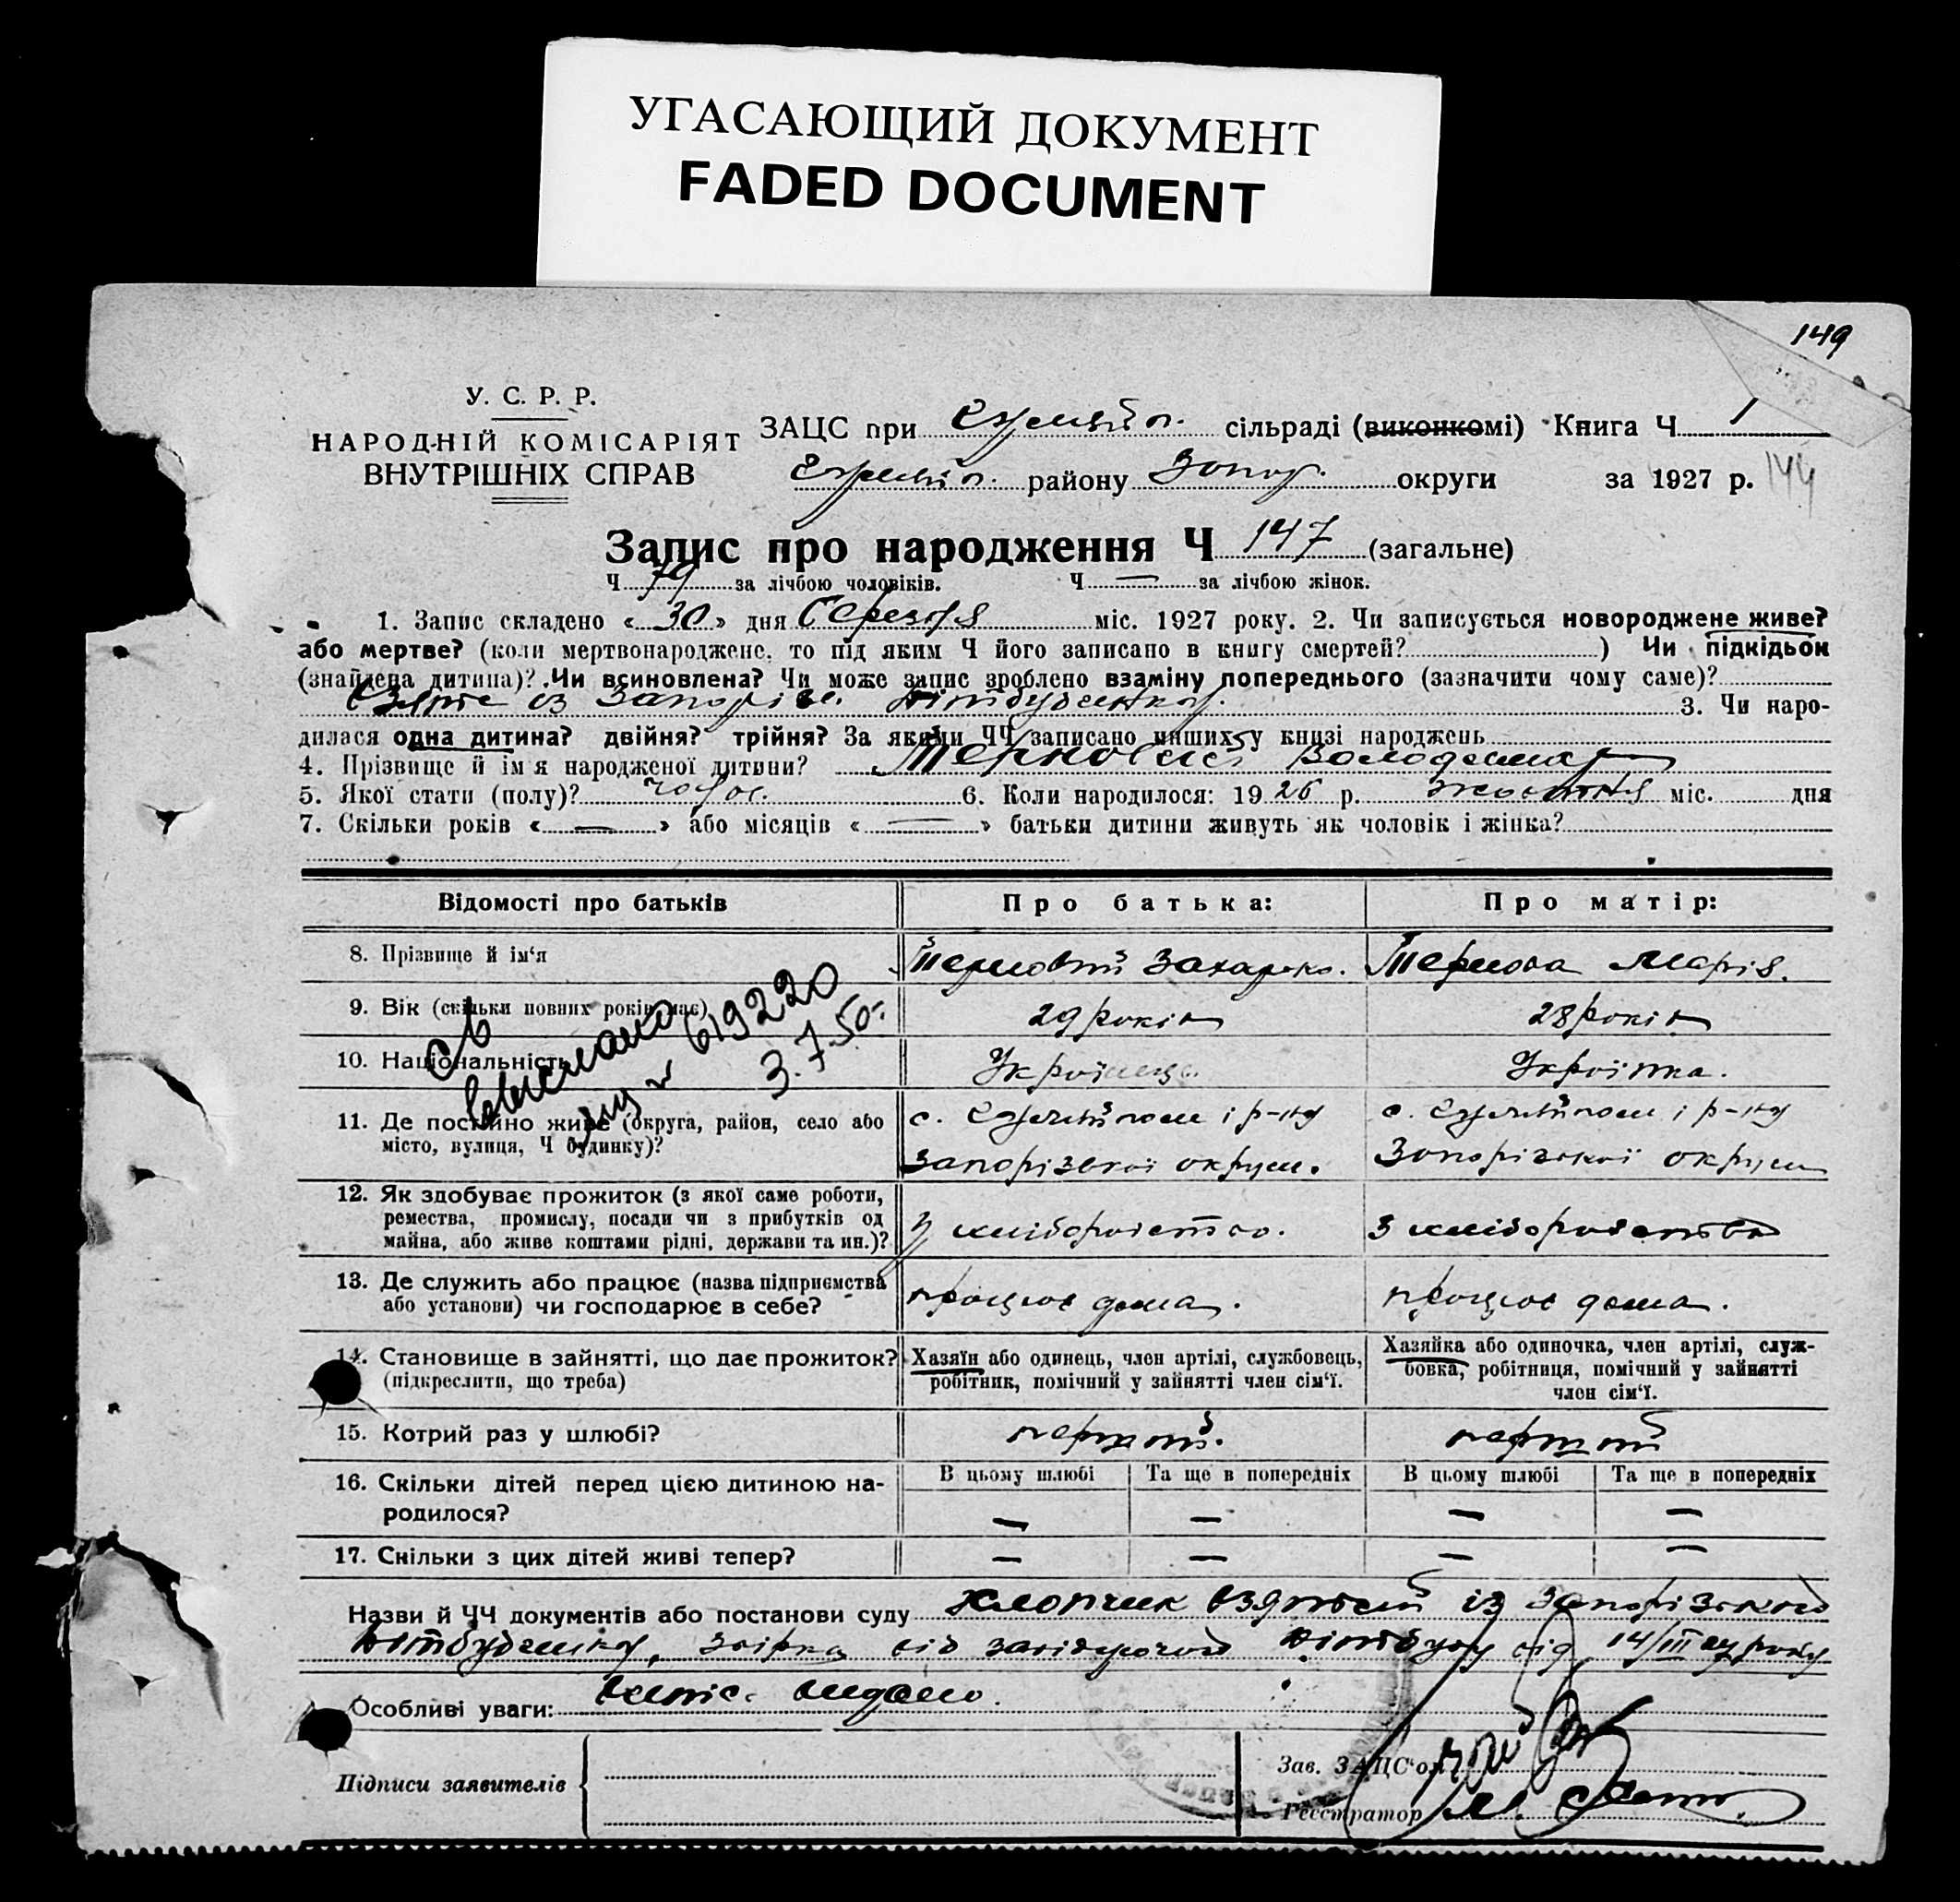 УГАСАЮЩИЙ ДОКУМЕНТ
FADED DOCUMENT
149
У. С. Р. Р.
НАРОДНІЙ КОМІСАРІЯТ
ВНУТРІШНІХ СПРАВ
ЗАЦС при сільраді (виконкомі) Книга Ч 1
району Запор. округи за 1927 р. 144
Запис про народження Ч 147 (загальне)
Ч 79 за лічбою чоловіків. Ч — за лічбою жінок.
1. Запис складено «30» дня березня міс. 1927 року. 2. Чи записується новороджене живе?
або мертве? (коли мертвонароджене, то під яким Ч його записано в книгу смертей?) Чи підкідьок
(знайдена дитина)? Чи всиновлена? Чи може запис зроблено взаміну попереднього (зазначити чому саме)?
взяте із Запорізь. дітбудинку. 3. Чи наро-
дилася одна дитина? двійня? трійня? За якими ЧЧ записано инших у книзі народжень
4. Прізвище й ім'я народженої дитини? Терновий Володимир
5. Якої стати (полу)? чолов. 6. Коли народилося: 1926 р. жовтня міс. дня
7. Скільки років «—» або місяців «—» батьки дитини живуть як чоловік і жінка?
Відомості про батьків Про батька: Про матір:
8. Прізвище й ім'я Терновий Захарко. Тернова Марія.
9. Вік (скільки повних років має) 29 років 28 років
10. Національність Українец. Українка.
св
выслано
619220
3.7.50.
11. Де постійно живе (округа, район, село або
місто, вулиця, Ч будинку)?
с. і р-ну
Запорізької округи.
с. і р-ну
Запорізької округи
12. Як здобуває прожиток (з якої саме роботи,
ремества, промислу, посади чи з прибутків од
майна, або живе коштами рідні, держави та ин.)?
З хліборобства. З хліборобства
13. Де служить або працює (назва підприємства
або установи) чи господарює в себе?
працює дома. працює дома.
14. Становище в зайнятті, що дає прожиток?
(підкреслити, що треба)
Хазяїн або одинець, член артілі, службовець,
робітник, помічний у зайнятті член сім'ї.
Хазяйка або одиночка, член артілі, служ-
бовка, робітниця, помічний у зайнятті
член сім'ї.
15. Котрий раз у шлюбі? перший. перший
16. Скільки дітей перед цією дитиною на-
родилося?
В цьому шлюбі Та ще в попередніх В цьому шлюбі Та ще в попередніх
— — — —
17. Скільки з цих дітей живі тепер? — — — —
Назви й ЧЧ документів або постанови суду Хлопчик взятий із Запорізького
дітбудинку, від завідуючого дітбуду від 14/III 27 року
Особливі уваги: видано.
Підписи заявителів
Зав. ЗАЦС'ом
Реєстратор